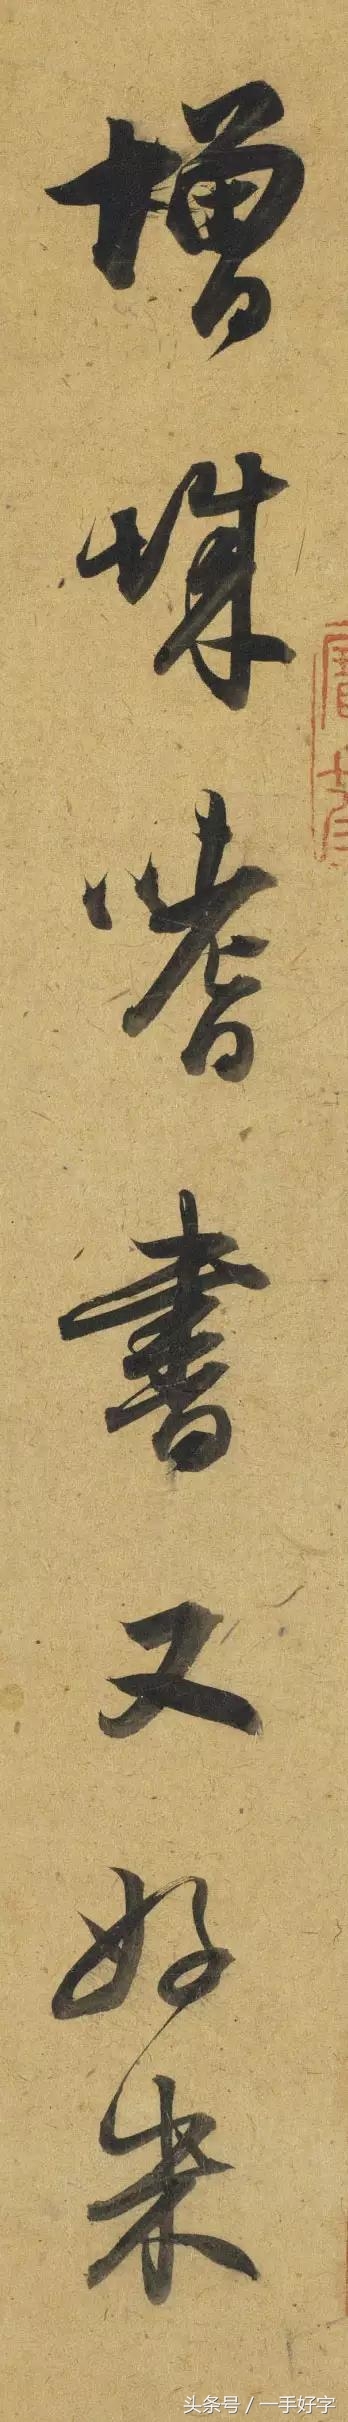 增城嗜書又好米
头条号 / 一手好字